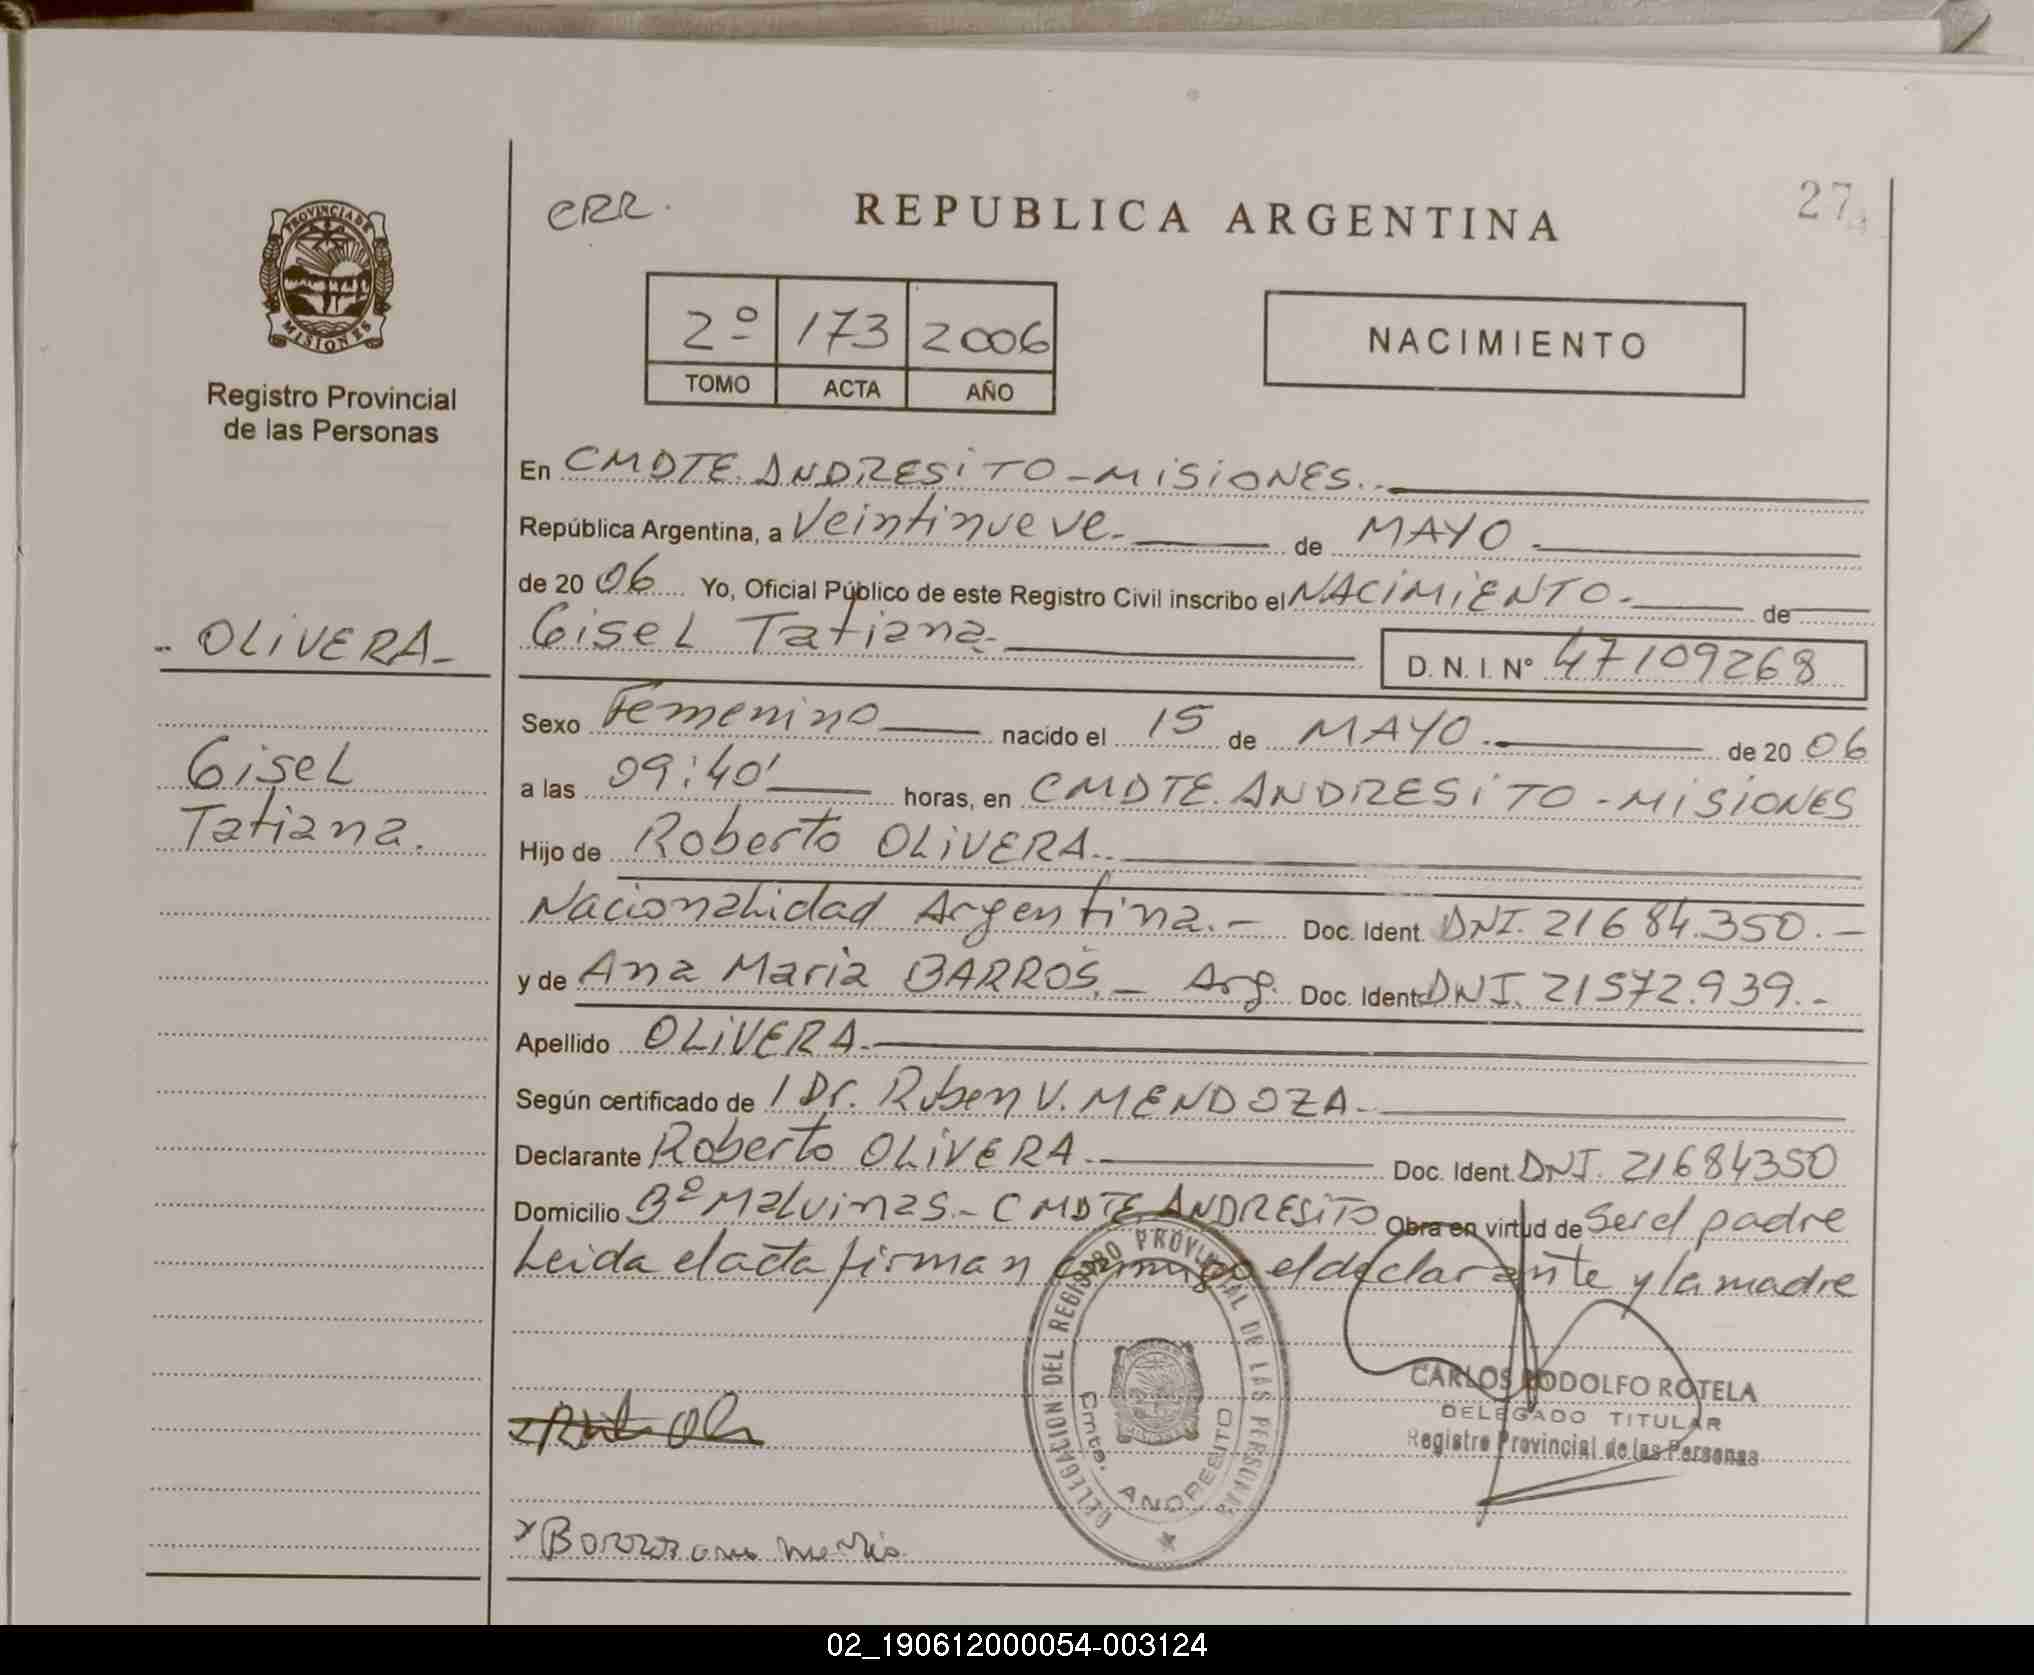 PROVINCIA DE
MISIONES
Registro Provincial
de las Personas
- OLIVERA -
Gisel
Tatiana.
CRR.
REPUBLICA ARGENTINA
27
2º 173 2006
TOMO ACTA AÑO
NACIMIENTO
En CMDTE. ANDRESITO - MISIONES.
República Argentina, a Veintinueve. de MAYO.
de 20 06 Yo, Oficial Público de este Registro Civil inscribo el NACIMIENTO. de
Gisel Tatiana.
D. N. I. Nº 47109268
Sexo Femenino nacido el 15 de MAYO. de 20 06
a las 09:40' horas, en CMDTE. ANDRESITO - MISIONES
Hijo de Roberto OLIVERA.
Nacionalidad Argentina.- Doc. Ident. DNI. 21684.350.-
y de Ana Maria BARROS. - Arg. Doc. Ident. DNI. 21572.939.-
Apellido OLIVERA.
Según certificado de 1 Dr. Ruben V. MENDOZA.
Declarante Roberto OLIVERA. Doc. Ident. DNI. 21684350
Domicilio Bº Malvinas.- CMDTE ANDRESITO Obra en virtud de Ser el padre
Leida el acta firman conmigo el declarante y la madre
DELEGACION DEL REGISTRO PROVINCIAL DE LAS PERSONAS
Cmte. ANDRESITO
CARLOS RODOLFO ROTELA
DELEGADO TITULAR
Registro Provincial de las Personas
02_190612000054-003124